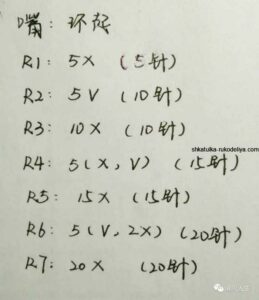 嘴：环起
R1: 5X (5针)
R2: 5V (10针)
R3: 10X (10针)
shkatulka-rukodeliya.com
R4: 5(X, V) (15针)
R5: 15X (15针)
R6: 5(V, 2X) (20针)
R7: 20X (20针)